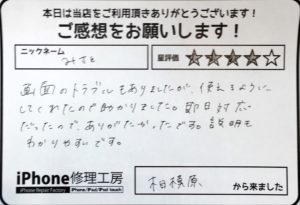 本日は当店をご利用頂きありがとうございます!
ご感想をお願いします!
ニックネーム
みさと
星評価
★★★★☆
画面のトラブルもありましたが、使えるように
してくれたので助かりました。即日対応
だったので、ありがたかったです。説明も
わかりやすいです。
iPhone修理工房
iPhone Repair Factory
iPhone/iPad/iPod touch
相模原
から来ました